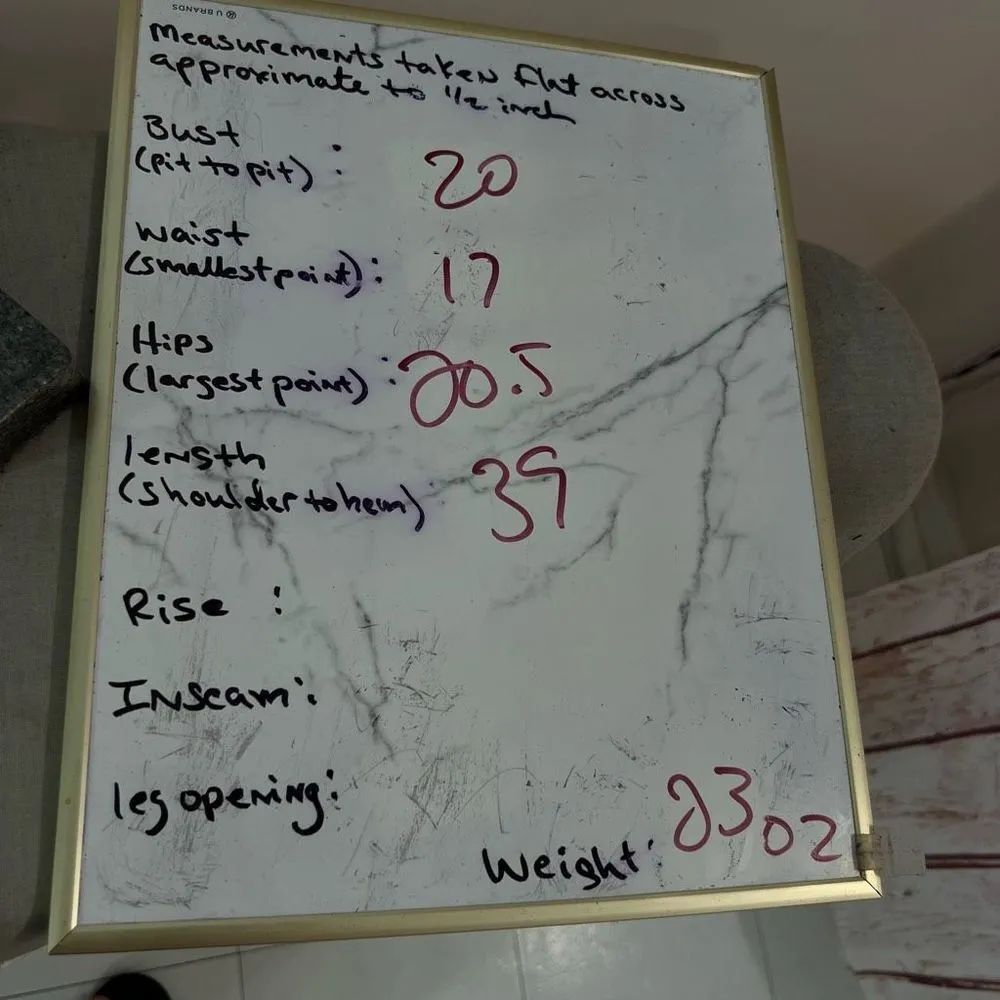 U BRANDS
Measurements taken flat across
approximate to 1/2 inch
Bust
(pit to pit) : 20
Waist
(smallest point) : 17
Hips
(largest point) : 20.5
length
(shoulder to hem) : 39
Rise :
Inseam :
leg opening :
Weight : 23 oz